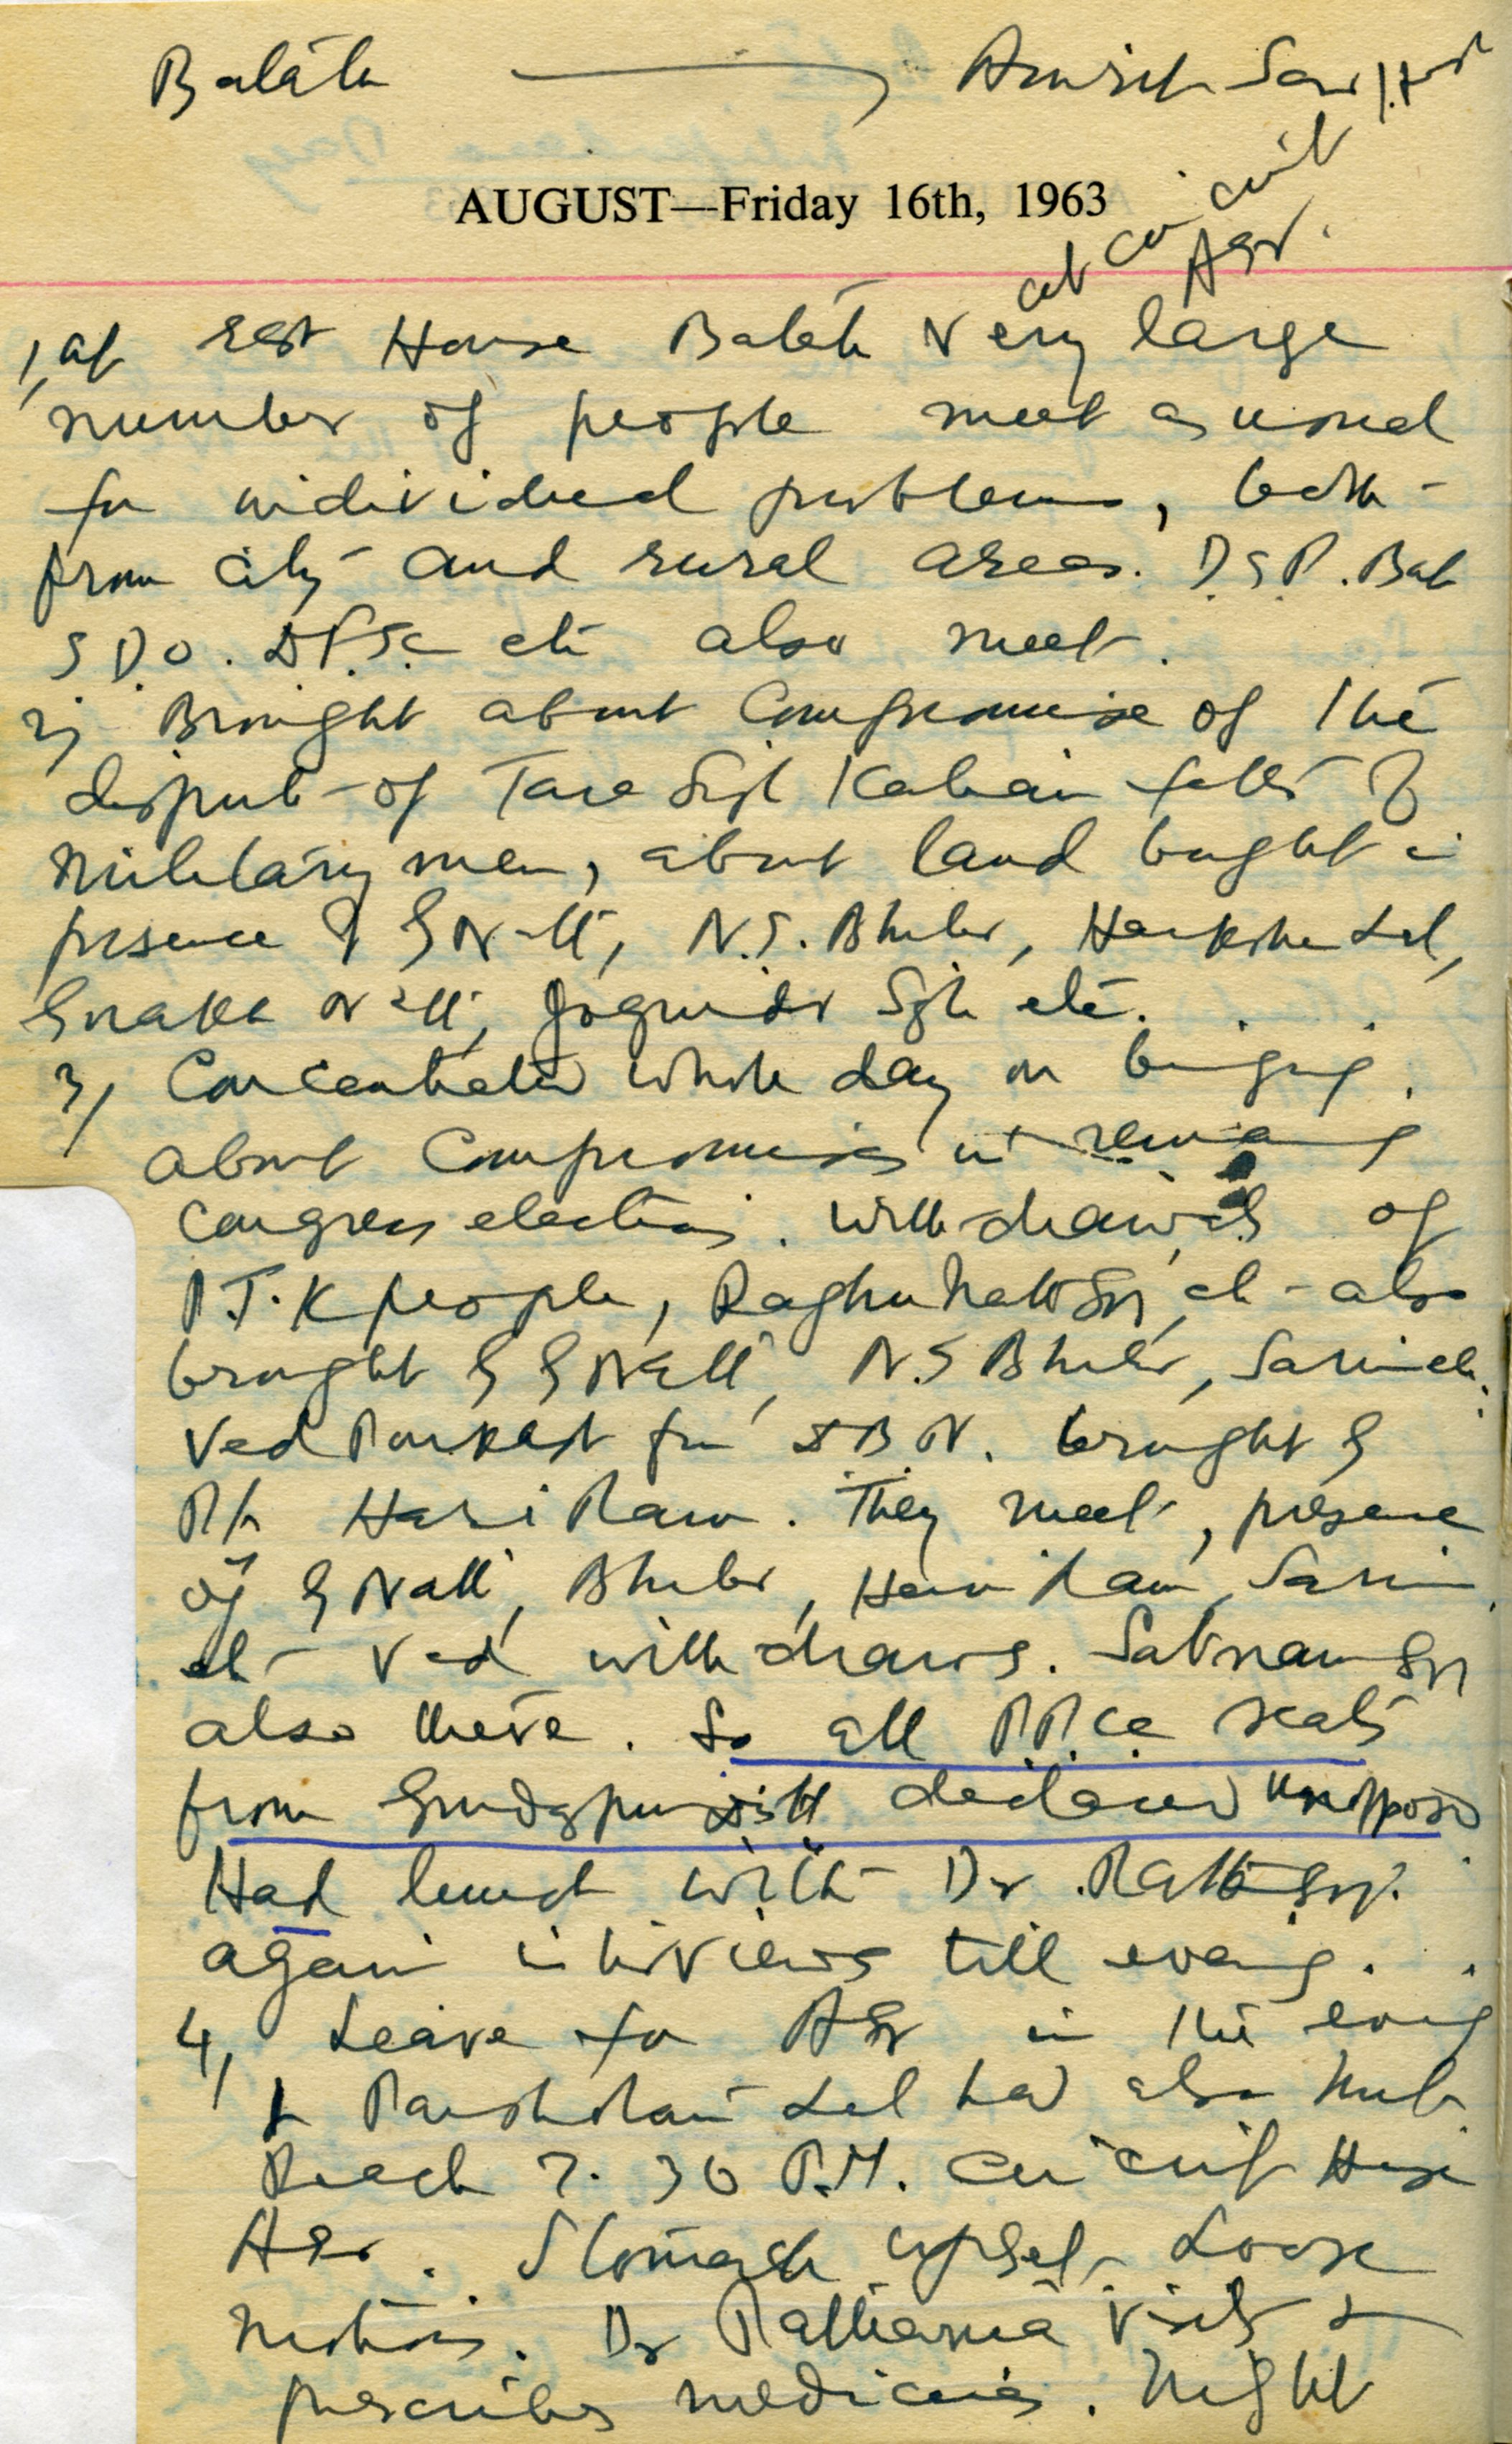 Batala Amritsar
AUGUST—Friday 16th, 1963
at
Asr.
1, at rest House Batala Very large
number of people meet as usual
for individual problems, both
from city and rural areas. D.S.P. Bat
S.D.O. etc also meet.
2, Brought about Compromise of the
dispute of Tara Singh of
military men, about land bought in
presence of N.S. Bhuler, Lal,
Joginder Sgh etc.
3, Concentrated whole day on bringing
about Compromises in remaing
Congress elections. Withdrawals of
P.T.K people, etc also
brought N.S Bhuler, Sarin etc.
Ved Parkash for brought
Pt Hari Ram. They meet, presence
of Bhuler, Hari Ram, Sarin
etc Ved withdraws. Satnam Sgn
also there. So all P.P.CC seats
from Gurdaspur Distt declared unopposed
Had lunch with Dr.
again interviews till evening.
4, Leave for ASr in the eveng
Lal had also
Reach 7.30 P.M. circuit House
ASr. Stomach upset, Loose
motions. Dr visits &
prescribes medicines. Night